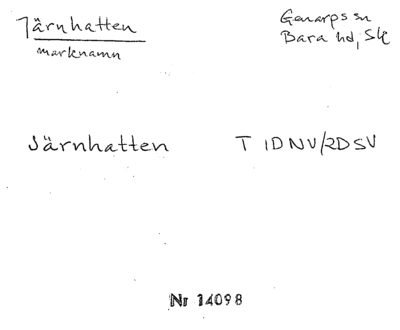 Järnhatten
marknamn
Genarps sn
Bara hd, Sk
Järnhatten T 1D NV/2D SV
Nr 14098